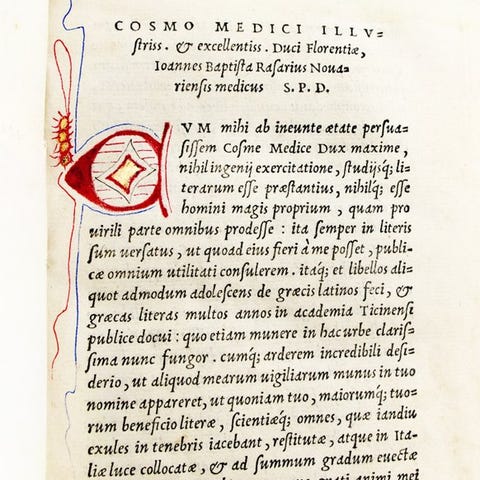 COSMO MEDICI ILLV-
striss. & excellentiss. Duci Florentiæ,
Ioannes Baptista Rasarius Noua-
riensis medicus S. P. D.
VM mihi ab ineunte ætate persua-
sissem Cosme Medice Dux maxime,
nihil ingenij exercitatione, studijsq; li-
terarum esse præstantius, nihilq; esse
homini magis proprium, quam pro
uirili parte omnibus prodesse : ita semper in literis
sum uersatus, ut quoad eius fieri à me posset, publi-
cæ omnium utilitati consulerem. itaq; et libellos ali-
quot admodum adolescens de græcis latinos feci, &
græcas literas multos annos in academia Ticinensi
publice docui : quo etiam munere in hac urbe claris-
sima nunc fungor. cumq; arderem incredibili desi-
derio, ut aliquod mearum uigiliarum munus in tuo
nomine appareret, ut quoniam tuo, maiorumq; tuo-
rum beneficio literæ, scientiæq; omnes, quæ iandiu
exules in tenebris iacebant, restitutæ, atque in Ita-
liæ luce collocatæ, & ad summum gradum euectæ
grati animi mei